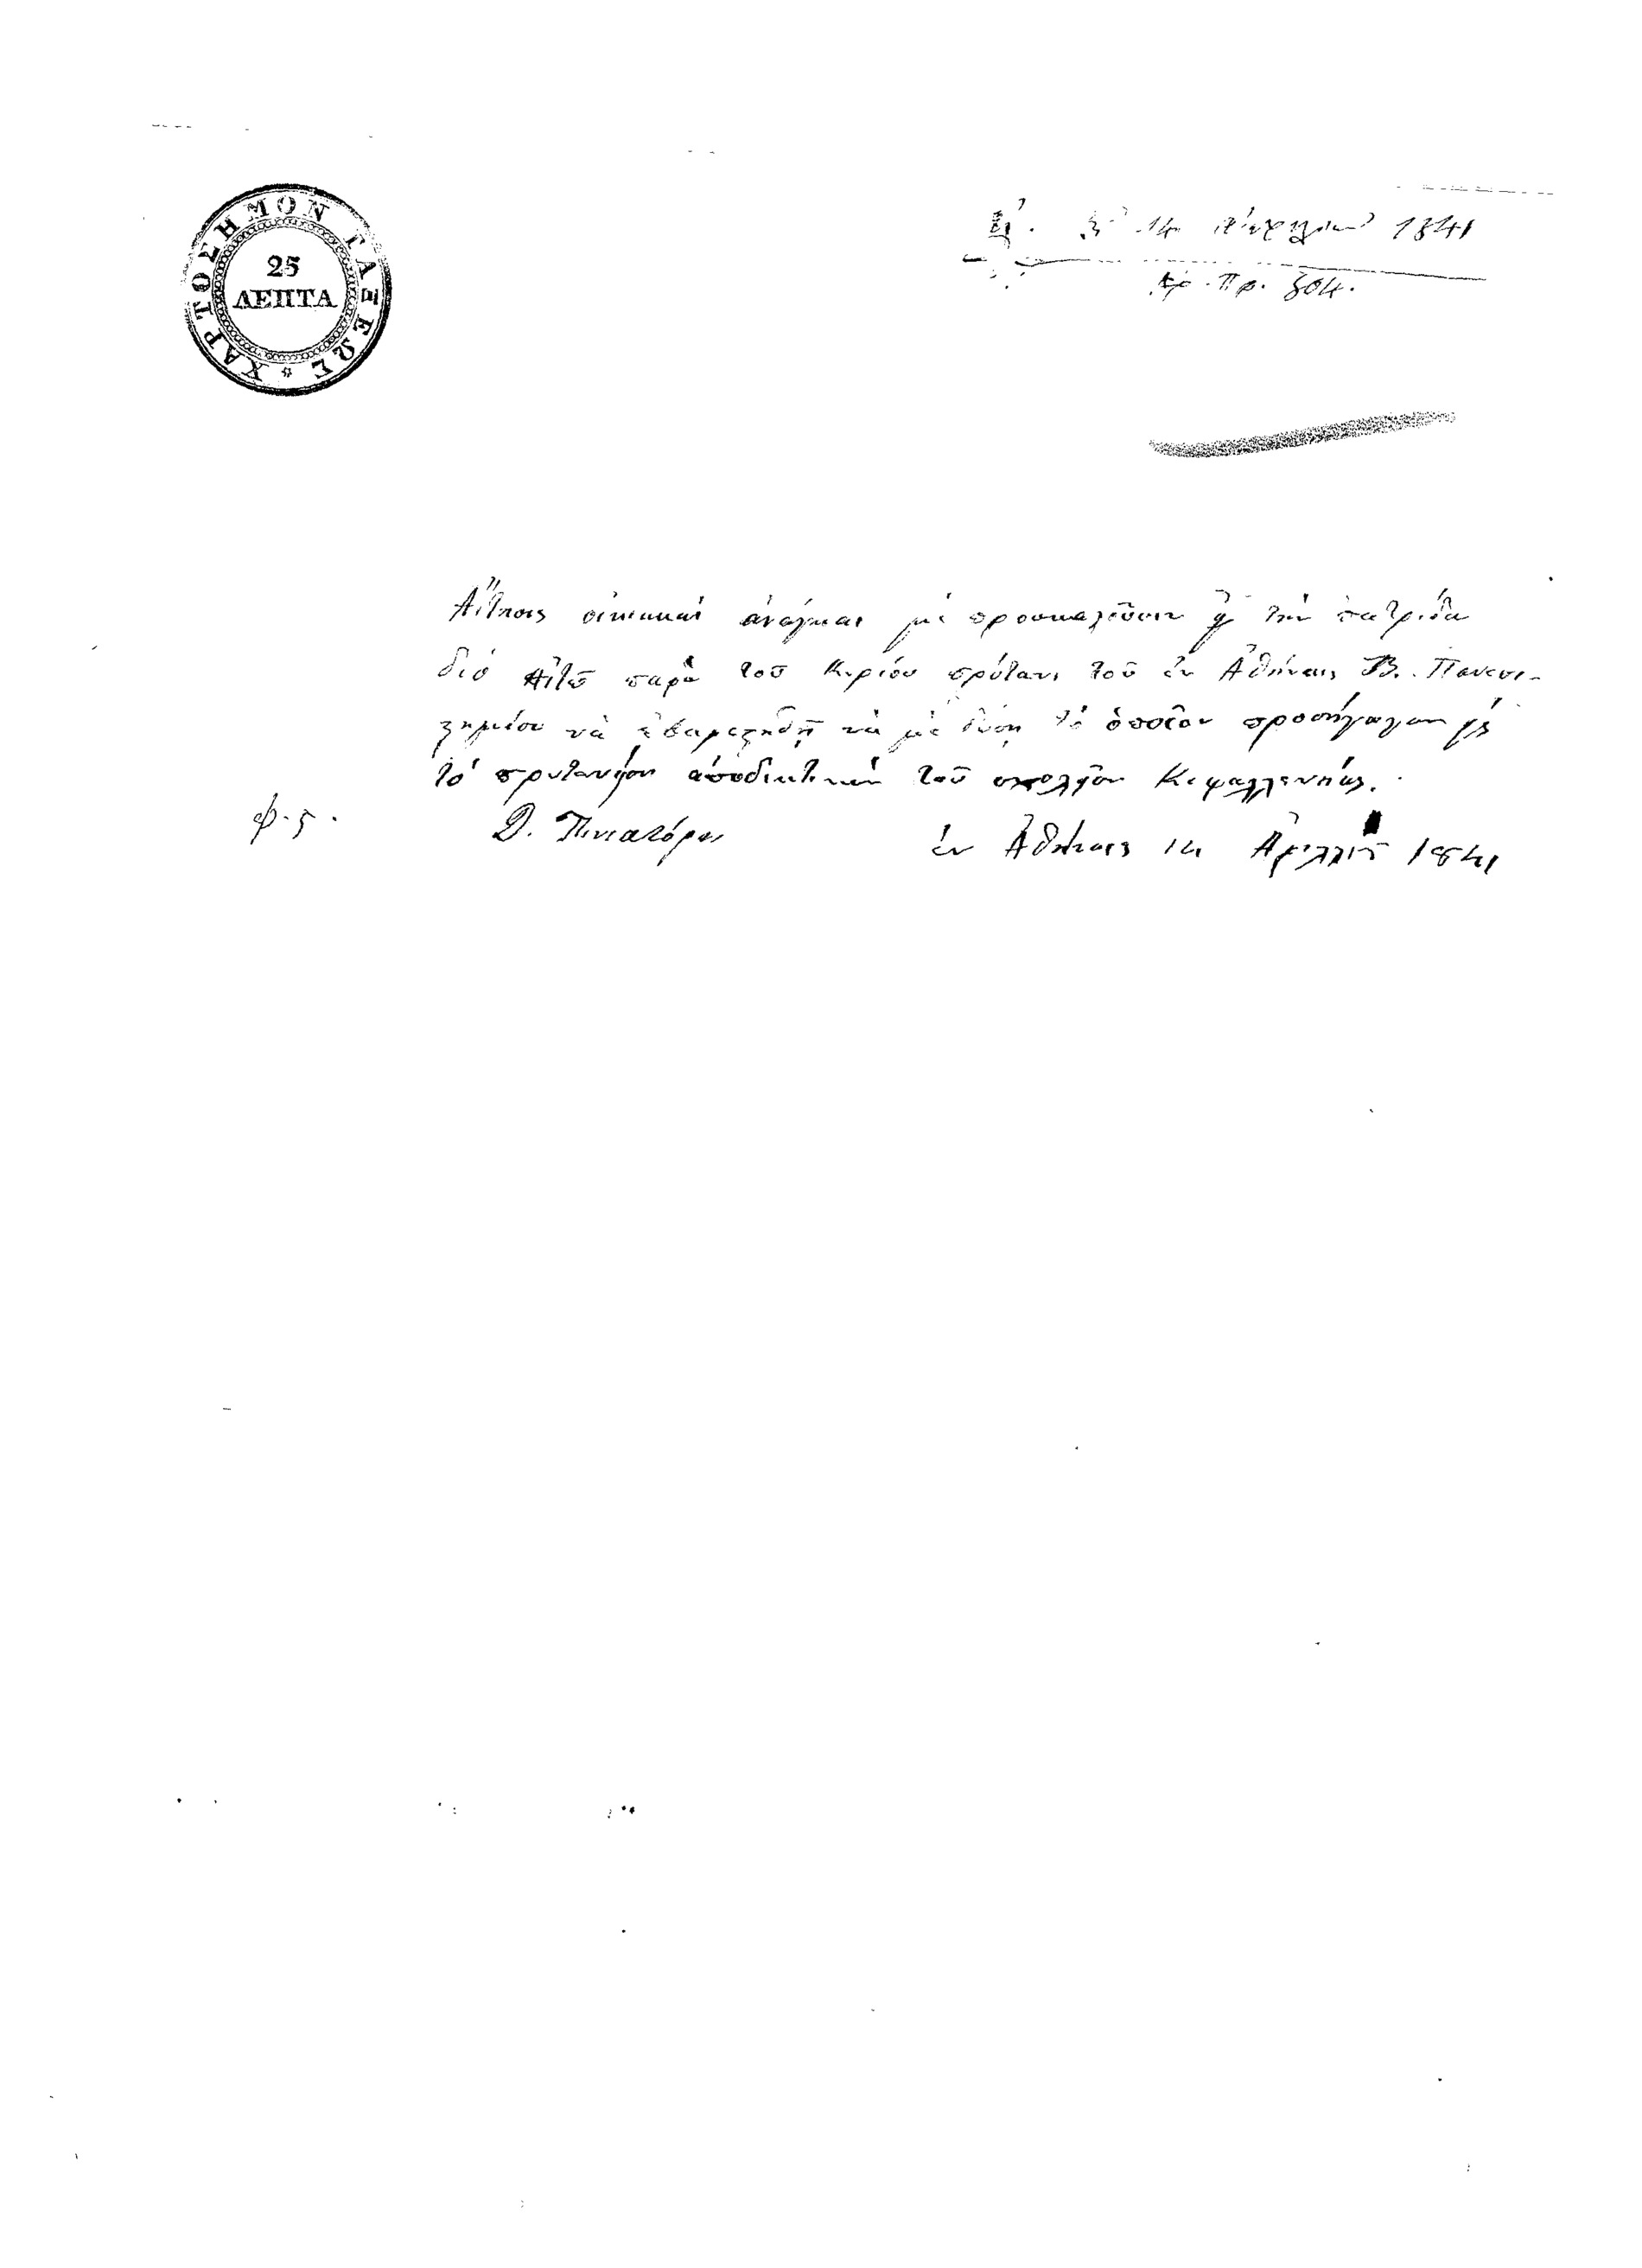 ΧΑΡΤΟΣΗΜΟΝ ΤΑΞΕΩΣ
25
ΛΕΠΤΑ
14 1841
Αρ. Πρ. 804.
Αἴτησις οἰκιακαὶ ἀνάγκαι μὲ προσκαλοῦσιν εἰς τὴν πατρίδα
διὸ αἰτῶ παρὰ τοῦ Κυρίου πρύτανι τοῦ ἐν Ἀθήναις Β. Πανεπι-
στημίου νὰ εὐαρεστηθῇ νὰ μὲ δώσῃ τὸ ὁποῖον προσήγαγον εἰς
τὸ πρυτανεῖον ἀποδικτικὸν τοῦ σχολείου Κεφαλληνίας.
Φ. 5.
Δ.
ἐν Ἀθήναις 14 Ἀπριλλίου 1841